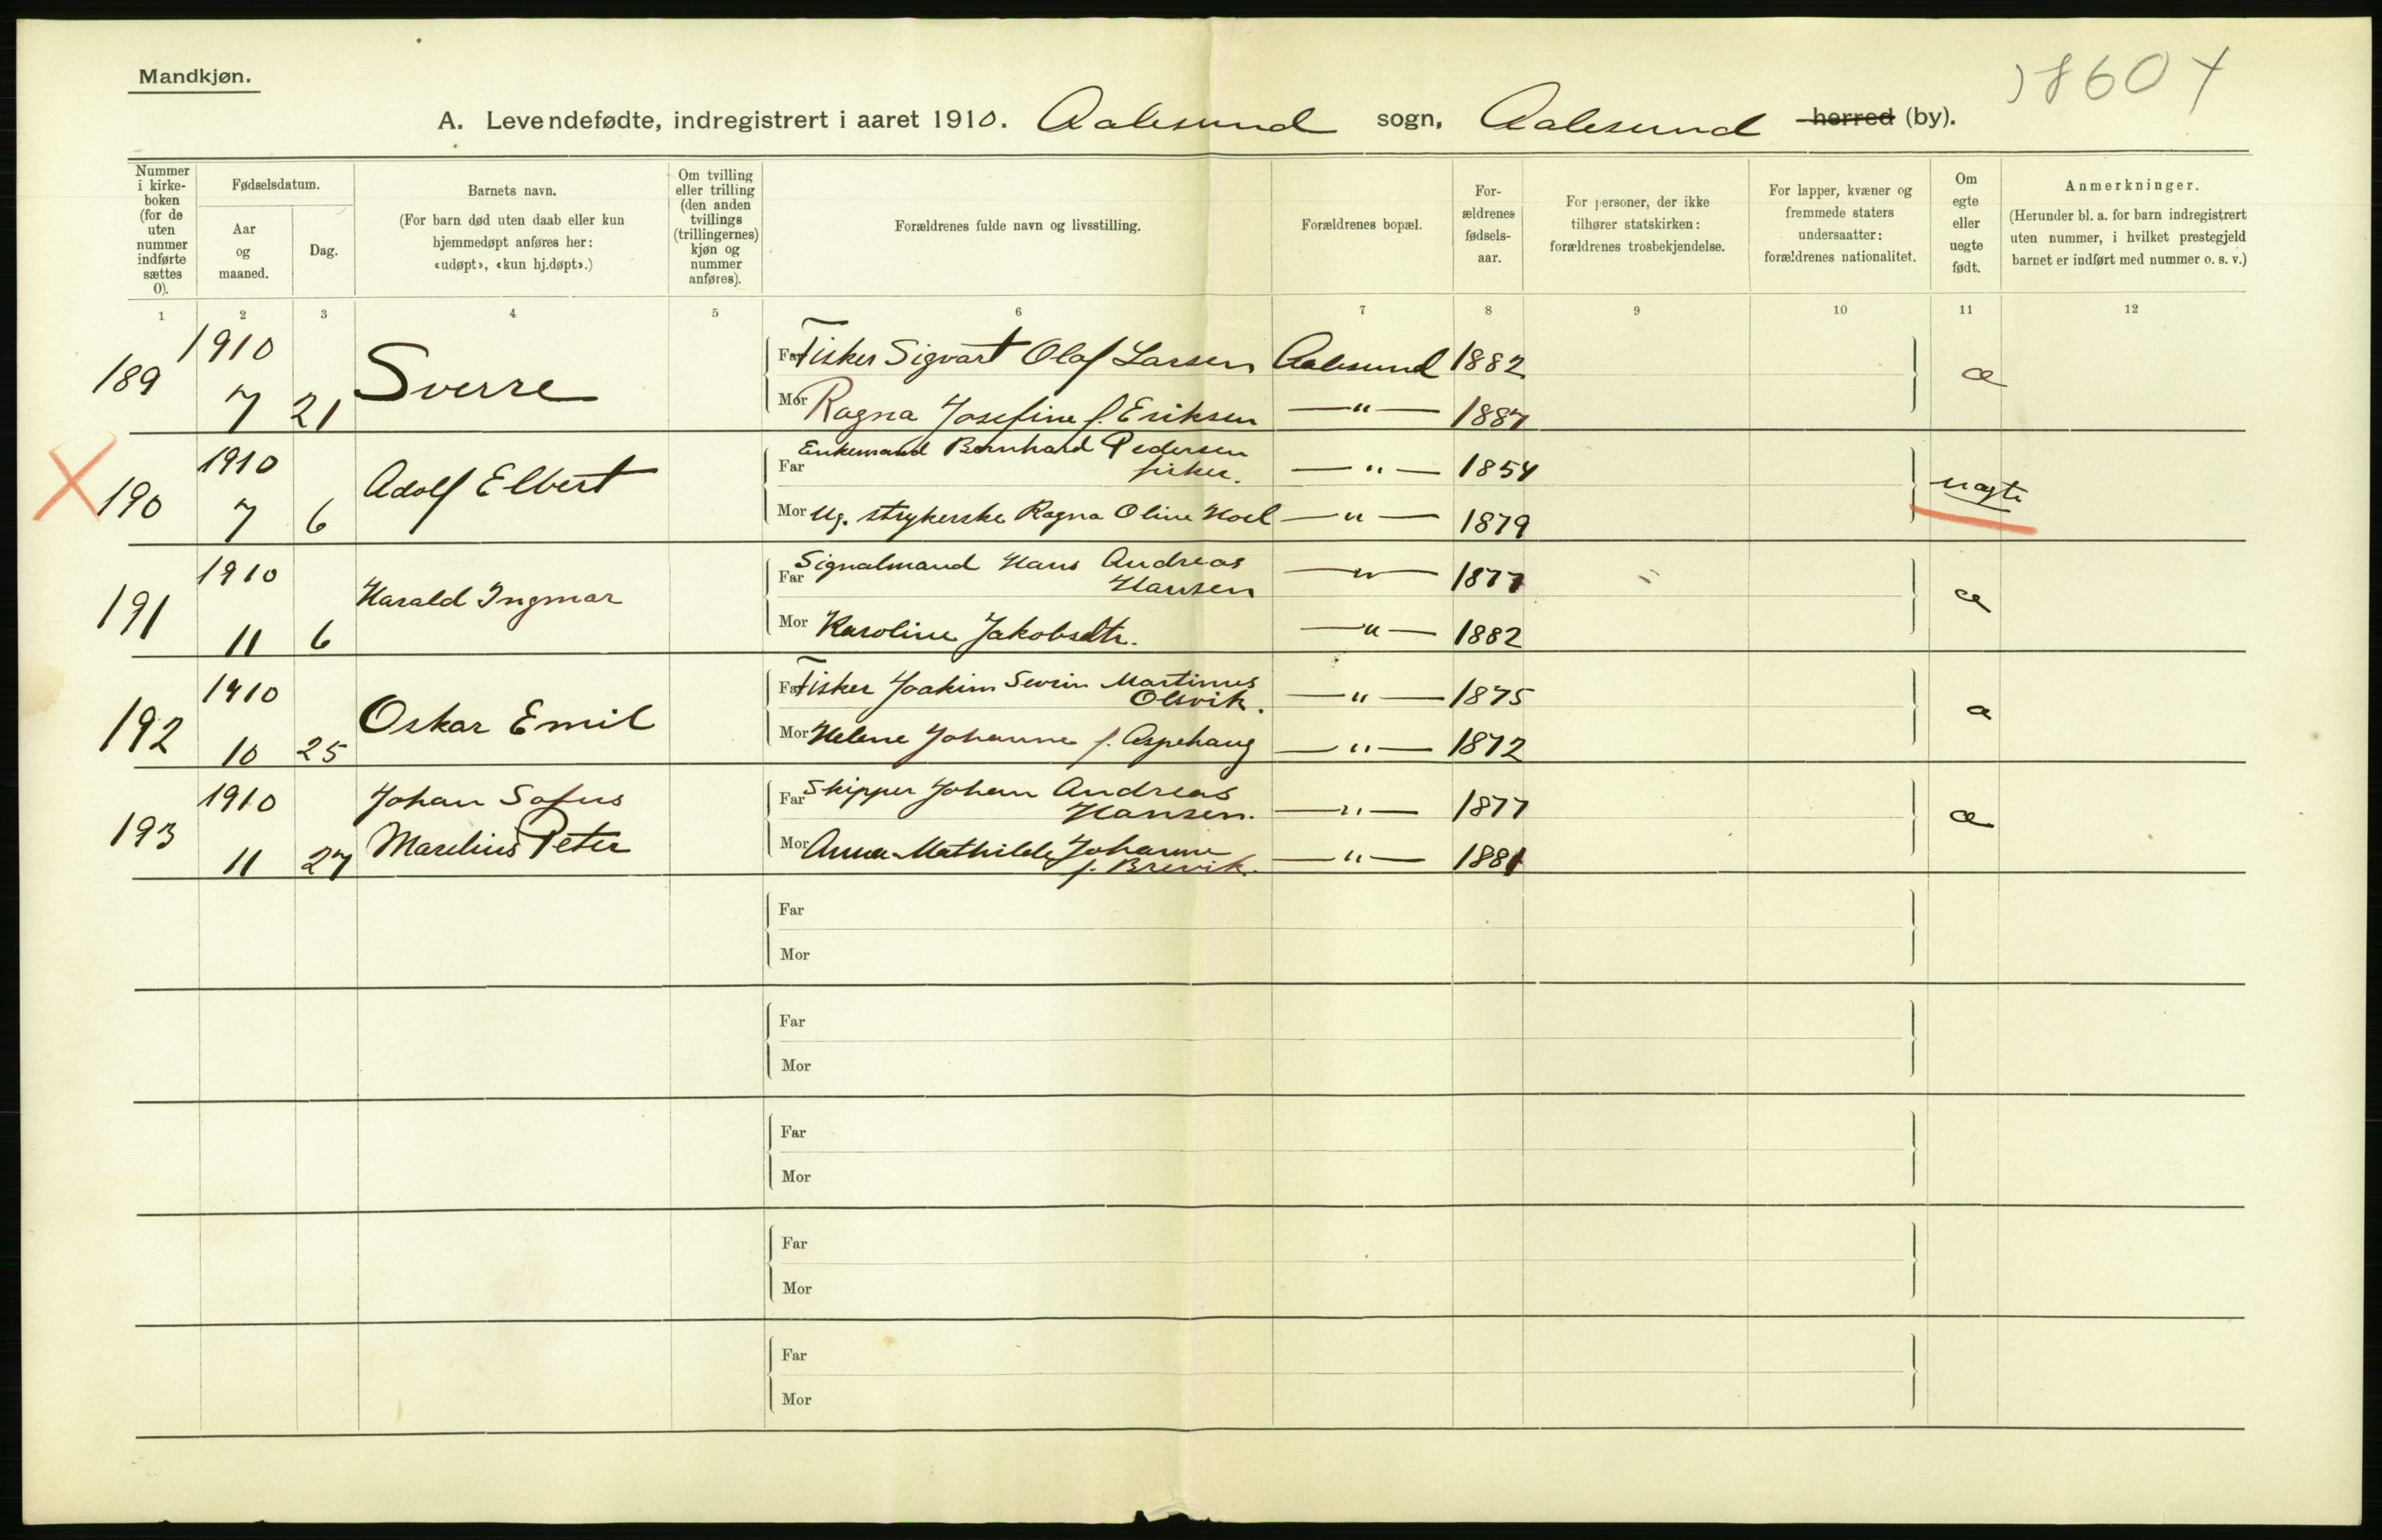 Mandkjøn.
18604
A. Levendefødte, indregistrert i aaret 1910. Aalesund sogn, Aalesund herred (by).
Nummer i kirke-boken (for de uten nummer indførte sættes 0).
Fødselsdatum.
Aar og maaned.
Dag.
Barnets navn.
(For barn død uten daab eller kun hjemmedøpt anføres her: «udøpt», «kun hj.døpt».)
Om tvilling eller trilling (den anden tvillings (trillingernes) kjøn og nummer anføres).
Forældrenes fulde navn og livsstilling.
Forældrenes bopæl.
For-ældrenes fødsels-aar.
For personer, der ikke tilhører statskirken: forældrenes trosbekjendelse.
For lapper, kvæner og fremmede staters undersaatter: forældrenes nationalitet.
Om egte eller uegte født.
Anmerkninger.
(Herunder bl. a. for barn indregistrert uten nummer, i hvilket prestegjeld barnet er indført med nummer o. s. v.)
1 2 3 4 5 6 7 8 9 10 11 12
189 1910 7 21 Sverre
Far Fisker Sigvart Olaf Larsen Aalesund 1882 æ
Mor Ragna Josefine f. Eriksen —"— 1887
190 1910 7 6 Adolf Elbert
Far Enkemand Bernhard Pedersen
fisker. —"— 1854 uægte
Mor Ug. strykerske Ragna Oline Hoel —"— 1879
191 1910 11 6 Harald Ingmar
Far Signalmand Hans Andreas
Hansen —"— 1877 æ
Mor Karoline Jakobsdtr. —"— 1882
192 1910 10 25 Oskar Emil
Far Fisker Joakim Sevrin Martinus
Olsvik. —"— 1875 æ
Mor Helene Johanne f. Aspehaug —"— 1872
193 1910 11 27 Johan Sofus
Marelius Peter
Far Skipper Johan Andreas
Hansen. —"— 1877 æ
Mor Anna Mathilde Johanne
f. Brevik. —"— 1881
Far
Mor
Far
Mor
Far
Mor
Far
Mor
Far
Mor